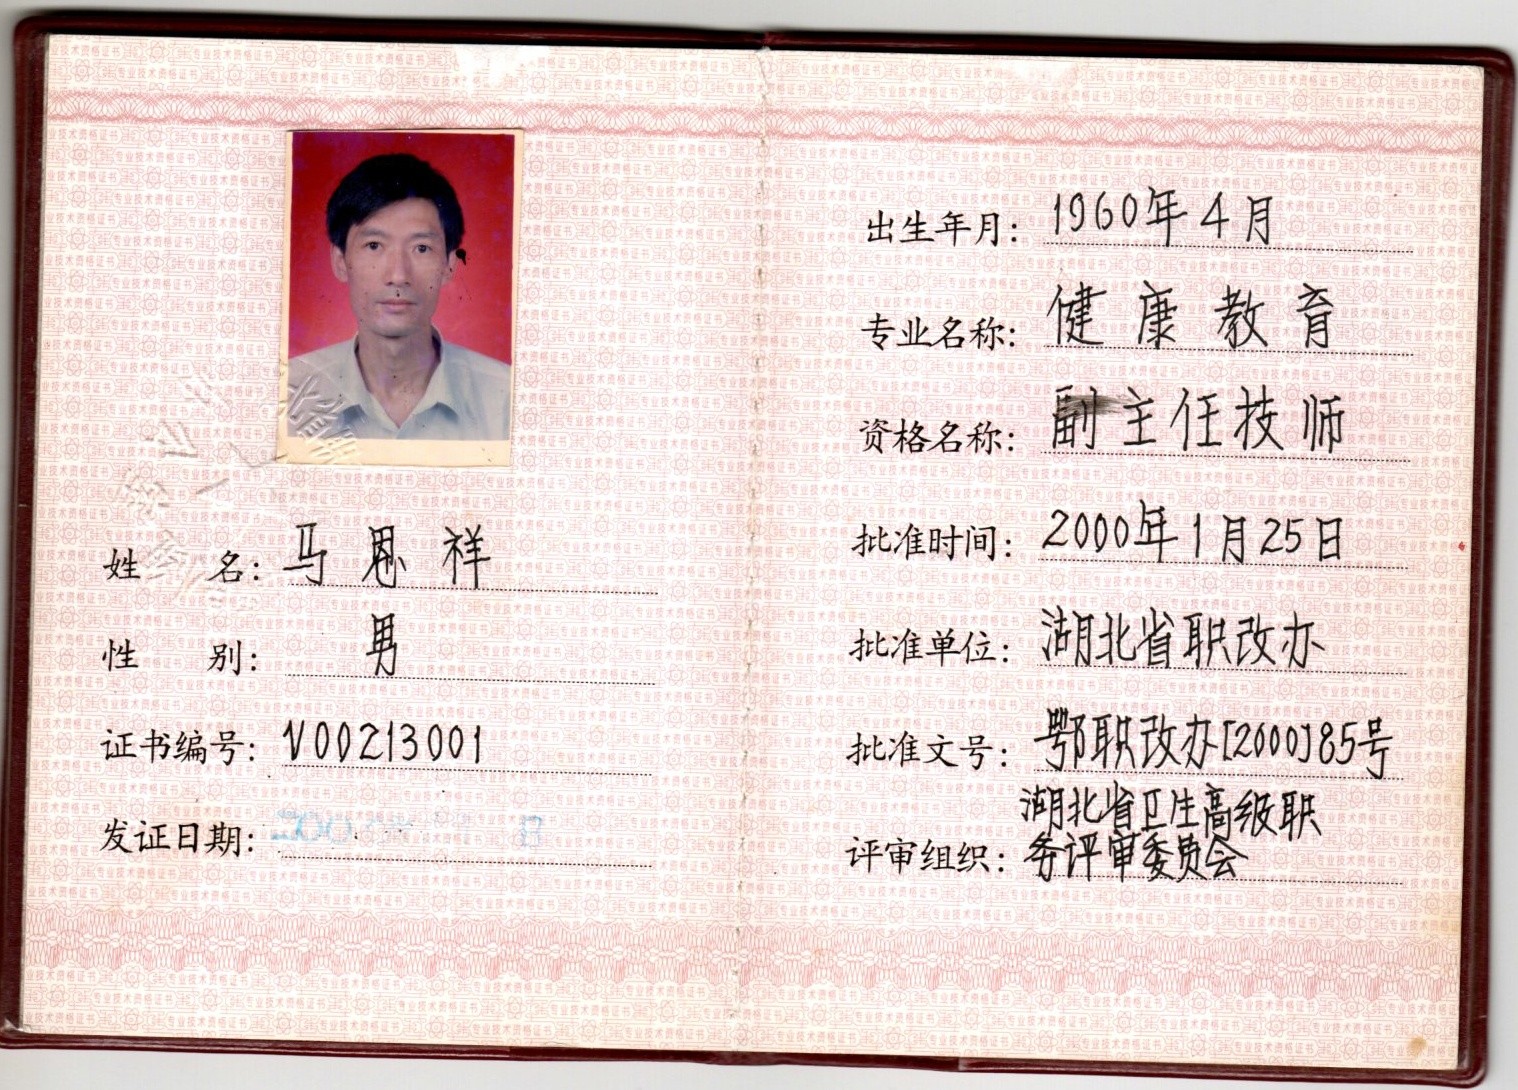 姓 名: 马恩祥
性 别: 男
证书编号: V00213001
发证日期:
出生年月: 1960年4月
专业名称: 健康教育
资格名称: 副主任技师
批准时间: 2000年1月25日
批准单位: 湖北省职改办
批准文号: 鄂职改办[2000]85号
湖北省卫生高级职
评审组织: 务评审委员会